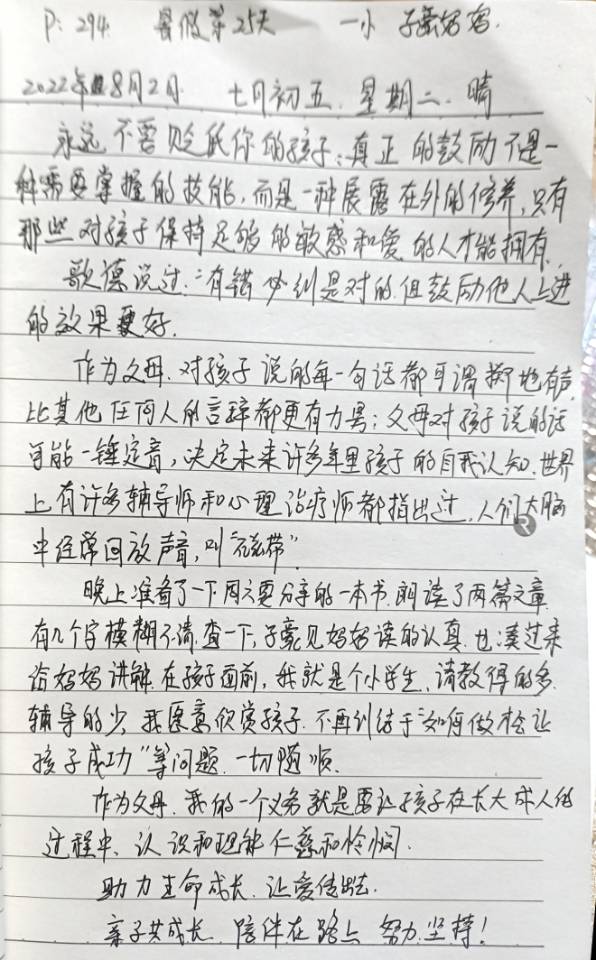 P: 294. 暑假第25天 一小 子豪妈
2022年8月2日 七月初五. 星期二. 晴
永远不要贬低你的孩子: 真正的鼓励不是一
种需要掌握的技能, 而是一种展露在外的修养, 只有
那些对孩子保持足够的敏感和爱的人才能拥有.
歌德说过: "有错必纠是对的. 但鼓励他人上进
的效果更好.
作为父母. 对孩子说的每一句话都可谓掷地有声
比其他任何人的言辞都更有力量; 父母对孩子说的话
可能一锤定音, 决定未来许多年里孩子的自我认知. 世界
上有许多辅导师和心理治疗师都指出过. 人们大脑
中经常回放声音, 叫"磁带"
晚上准备了一下周六要分享的一本书. 朗读了两篇文章
有几个字模糊不清. 查一下, 子豪见妈妈读的认真. 也凑过来
给妈妈讲解. 在孩子面前, 我就是个小学生. 请教得的多.
辅导的少. 我愿意欣赏孩子. 不再纠结于"如何做才会让
孩子成功"等问题. 一切随顺.
作为父母. 我的一个义务就是要让孩子在长大成人的
过程中、认识和理解仁慈和怜悯.
助力生命成长. 让爱传出去.
亲子共成长. 陪伴在路上 努力. 坚持!